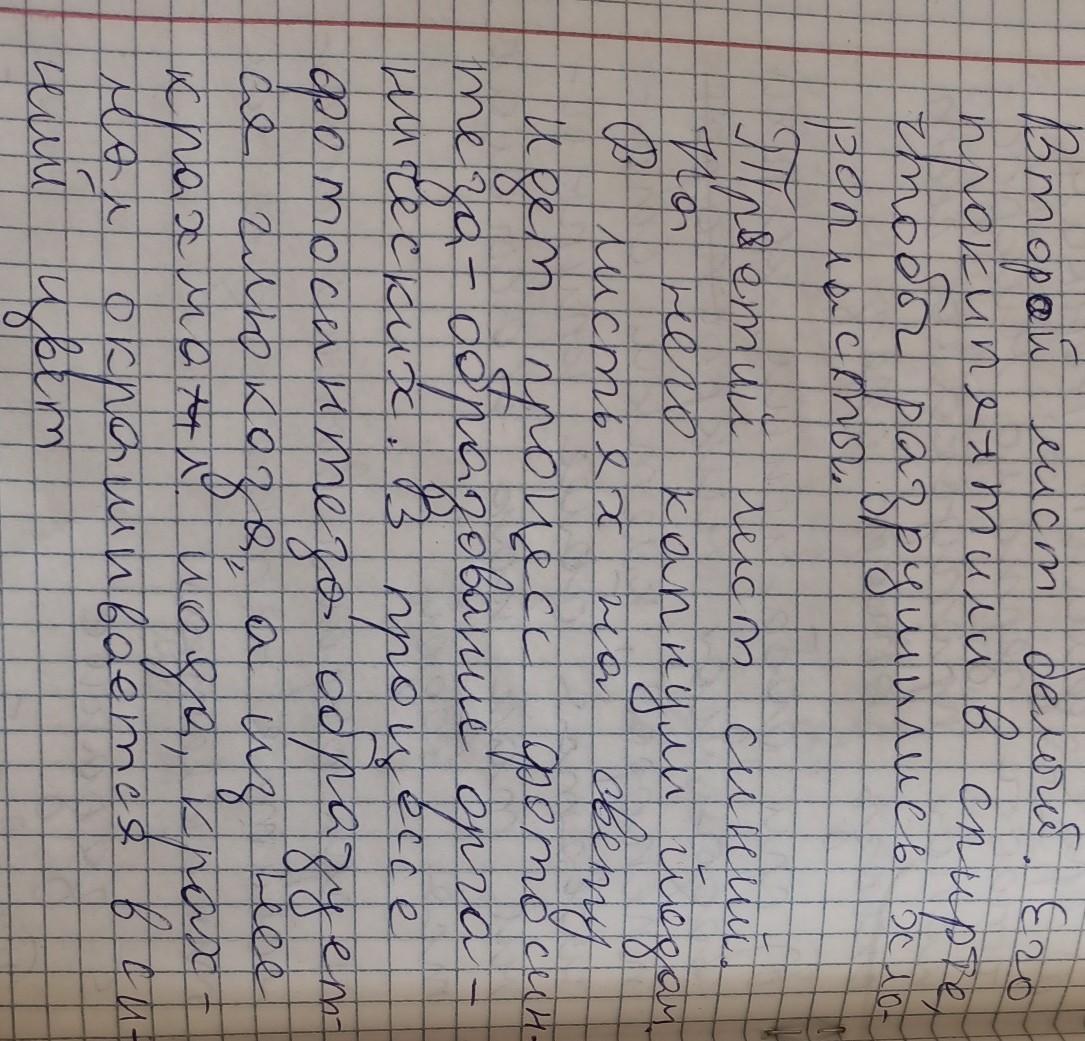 Второй лист белый. Его
прокипятили в спирте,
чтобы разрушились хло-
ропласты.
Третий лист синий.
На него капнули йодом.
В листьях на свету
идет процесс фотосин-
теза - образование орга-
нических. В процессе
фотосинтеза образует-
ся глюкоза, а из нее
крахмал. иода, крах-
мал окрашивается в си-
ний цвет